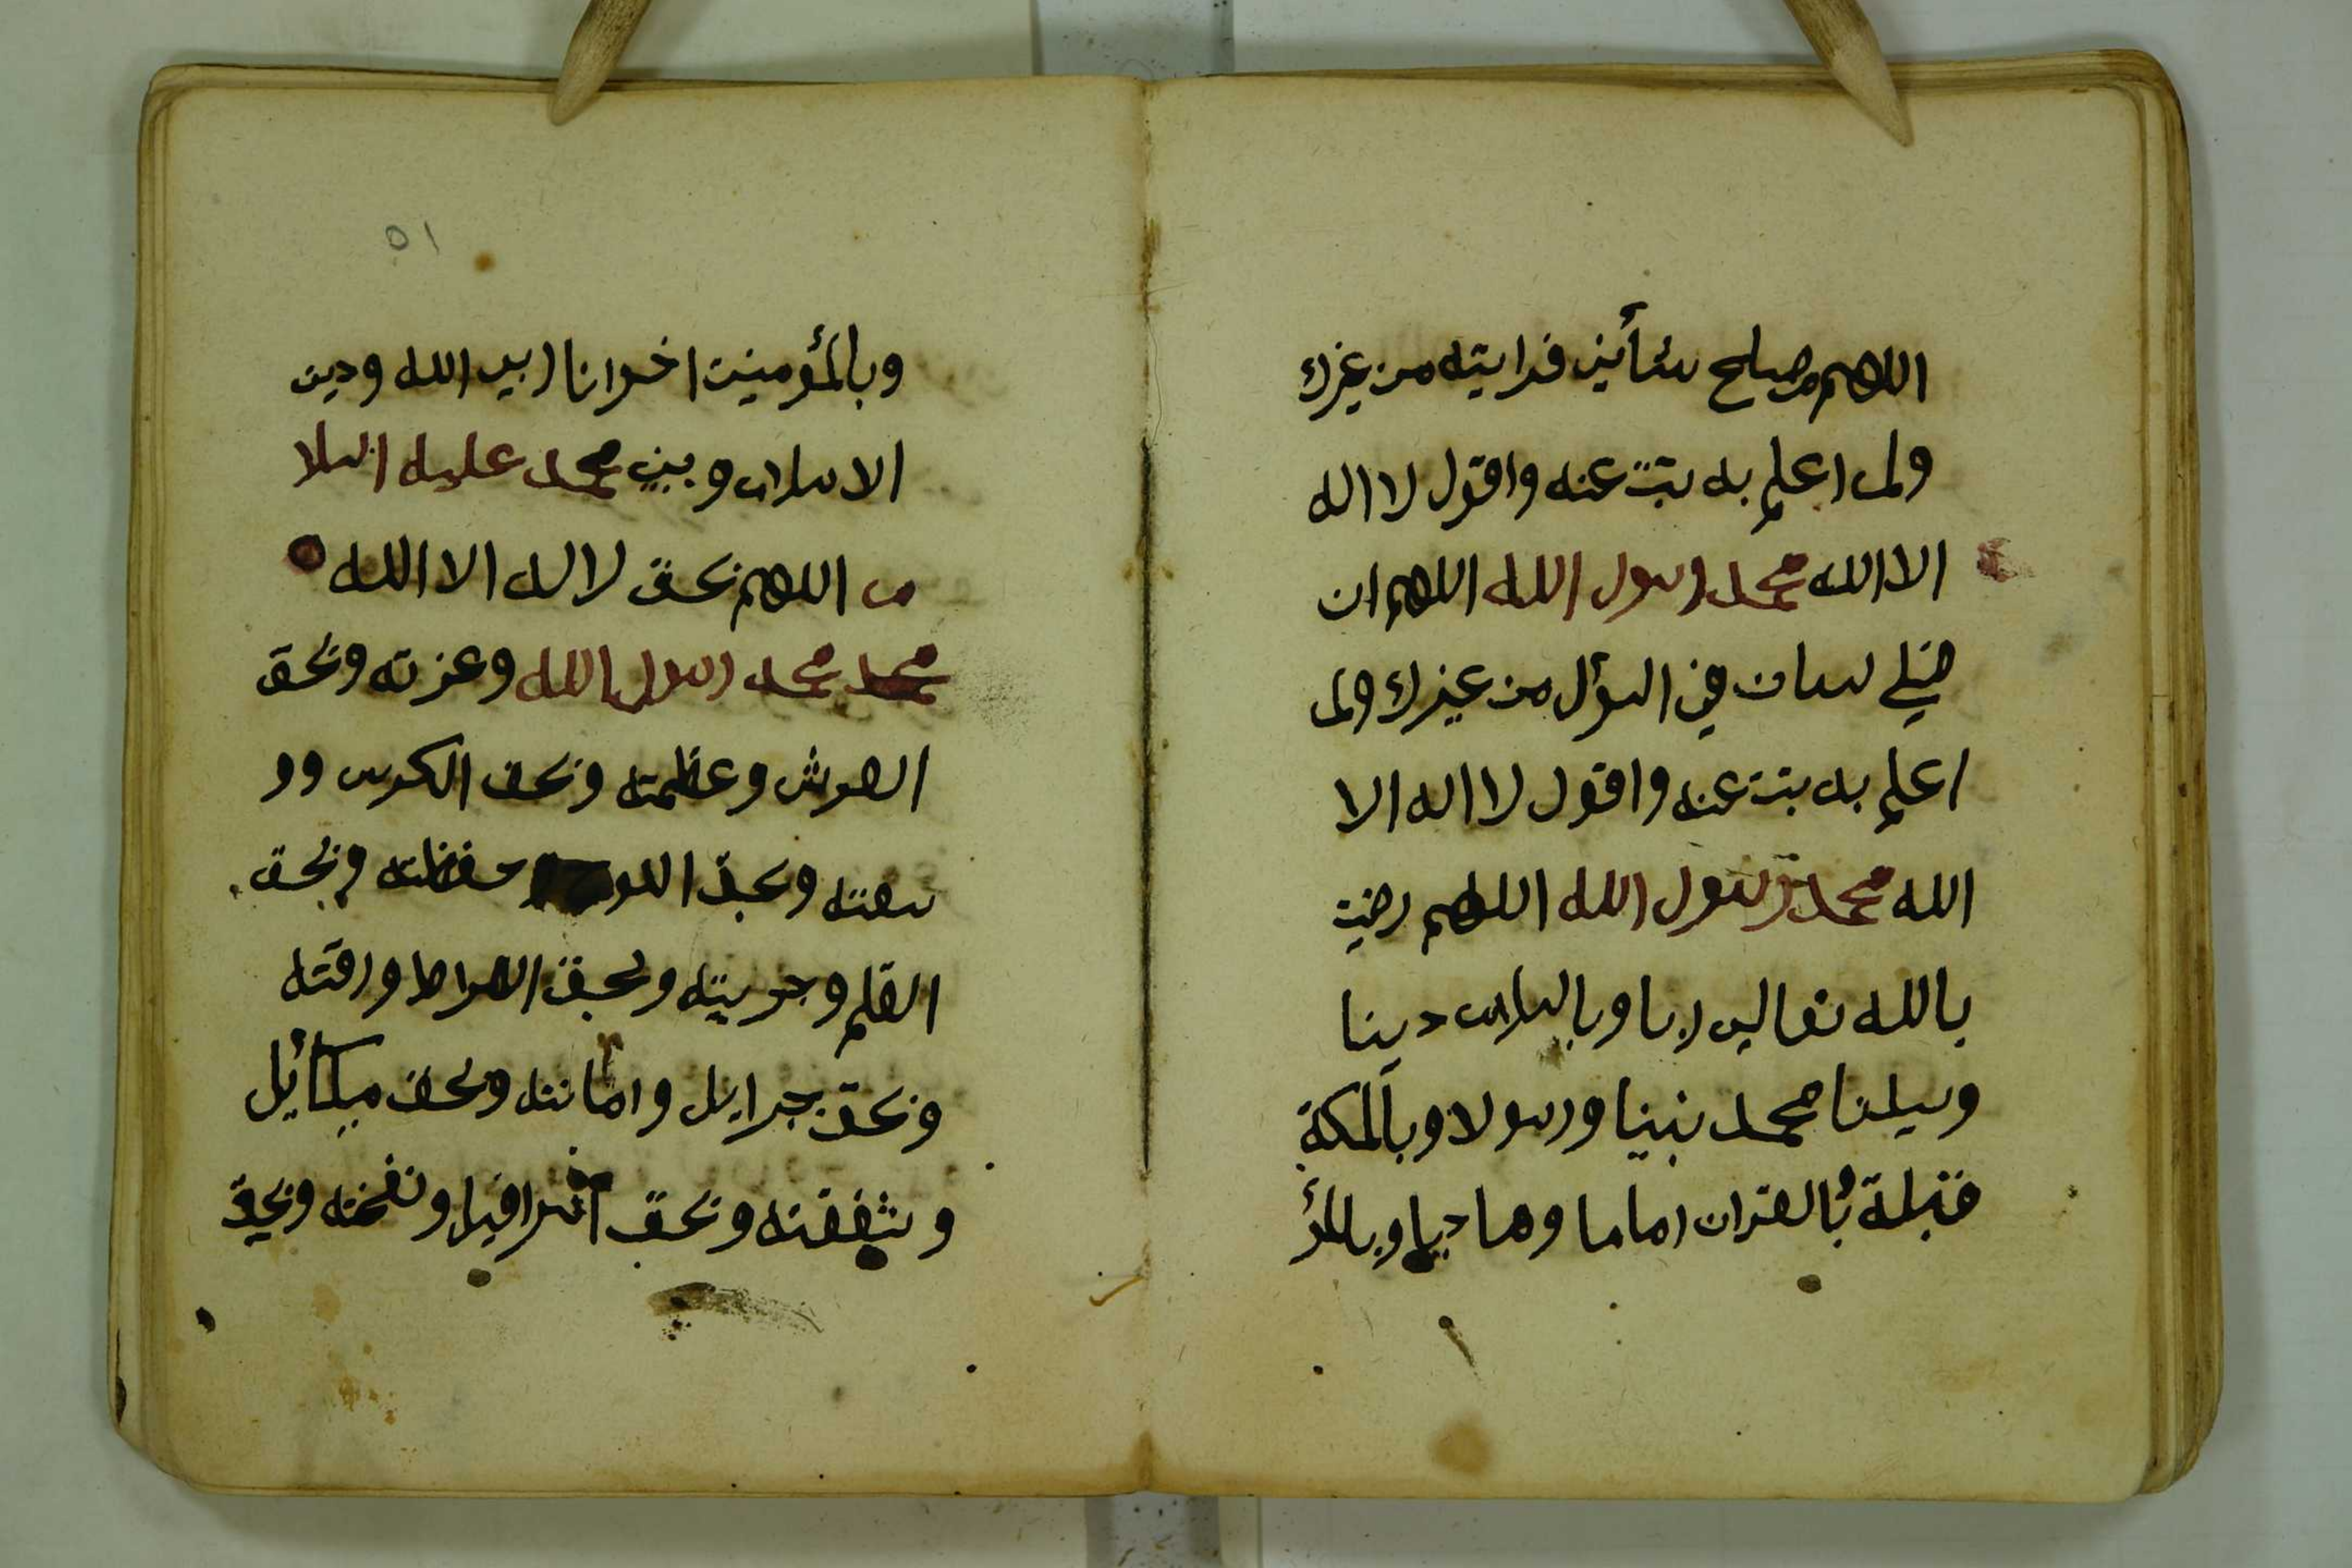 اللهم مصلح شأني فرايته من غيرك
ولم اعلم به تبت عنه واقول لا اله
الا الله محمد رسول الله اللهم ان
لسان في السؤال من غيرك ولم
اعلم به تبت عنه واقول لا اله الا
الله محمد رسول الله اللهم رضيت
بالله تعالى ربا وبالسلام دينا
وسيلنا محمد نبينا ورسولا وبالمكة
قبلة وبالقران اماما وهاديا وبالمؤ
٥١
وبالمؤمنين اخوانا ربي الله ودين
الاسلام وبيني محمد عليه السلا
م اللهم بحق لا اله الا الله
محمد محمد رسول الله وعزته وبحق
العرش وعظمته وبحق الكرسي وو
سعته وبحق اللوح وحفظته وبحق
القلم وجريته وبحق الصراط ورقته
وبحق جبرايل وامانته وبحق ميكائيل
وشفقته وبحق اسرافيل ونفخته وبحق